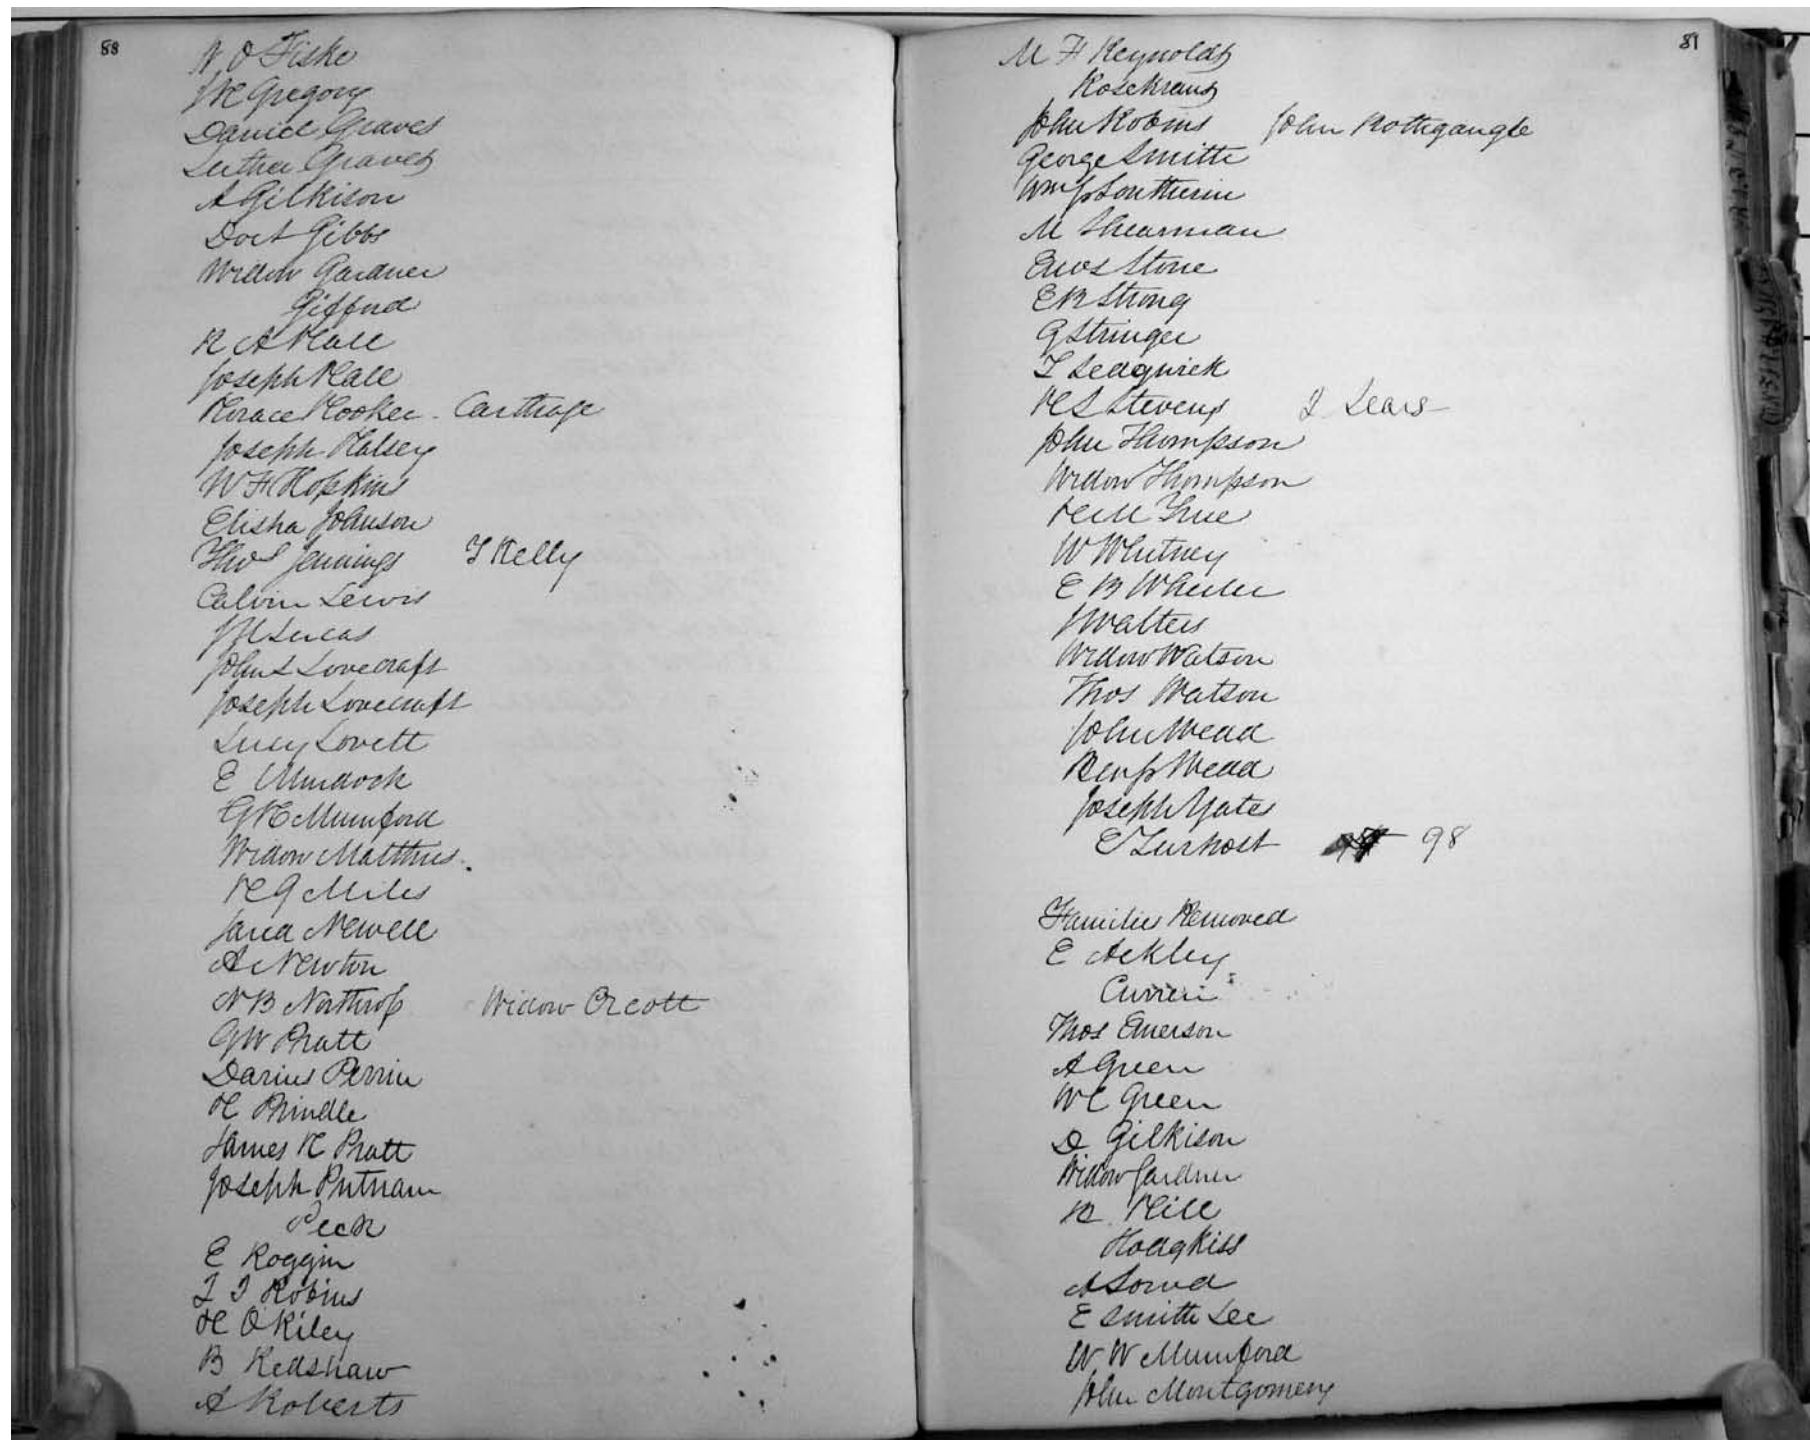 88
N O Fiske
H Gregory
Daniel Graves
Luther Graves
A Gilkison
Doct Gibbs
Widow Gardner
Gifford
R A Hall
Joseph Hall
Horace Hooker - Carthage
Joseph Halsey
W F Hopkins
Elisha Johnson
Thos Jennings T Kelly
Calvin Lewis
Lucas
John L Lovecraft
Joseph Lovecraft
Lucy Lovett
E Murdock
G H Mumford
Widow Matthies
H G Miles
Jared Newell
A Newton
N B Northrop Widow Orcott
G W Pratt
Darius Perrin
H Prindle
James H Pratt
Joseph Putnam
Peck
E Roggin
I I Robins
H O Kiley
B Redshaw
A Roberts
81
M F Reynolds
Rosekrans
John Robins John Rothgangle
George Smith
Wm Jr Southerin
M Shearman
Enos Stone
E R Strong
G Stringer
T Sedgwick
H S Stevens I Sears
John Thompson
Widow Thompson
H M True
W Whitney
E B Wheeler
J Walters
Widow Watson
Thos Watson
John Wead
Benj Wead
Joseph Yates
E Zurhost 98
Families Removed
E Ackley
Currier
Thos Emerson
A Green
W C Green
D Gilkison
Widow Gardner
R Hill
Hodgkiss
A Lord
E Smith Lee
W W Mumford
John Montgomery